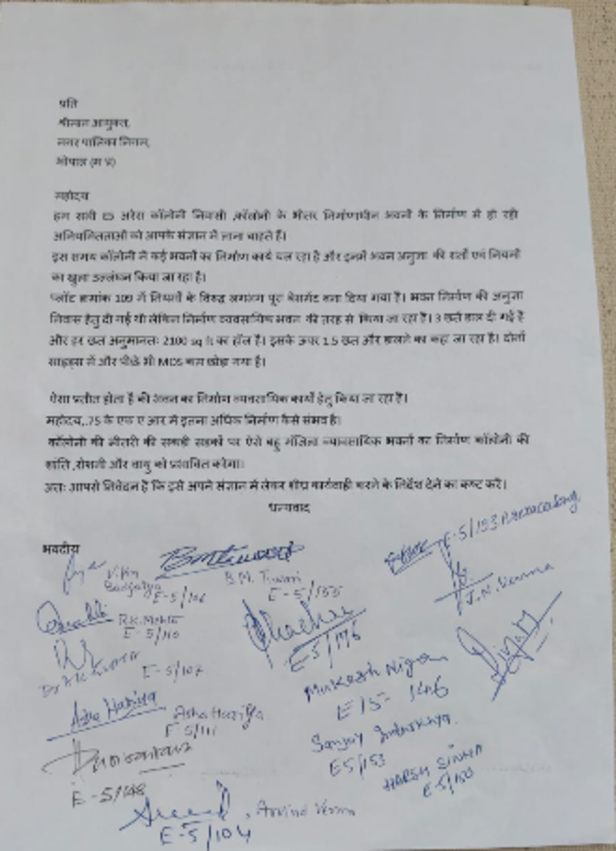 प्रति
श्रीमान आयुक्त,
नगर पालिका निगम,
भोपाल (म प्र)
महोदय
हम सभी E5 अरेरा कॉलोनी निवासी ,कॉलोनी के भीतर निर्माणाधीन भवनों के निर्माण में हो रही
अनियमितताओं को आपके संज्ञान में लाना चाहते हैं।
इस समय कॉलोनी में कई भवनों का निर्माण कार्य चल रहा है और इनमें भवन अनुज्ञा की शर्तों एवं नियमों
का खुला उल्लंघन किया जा रहा है।
प्लॉट क्रमांक 109 में नियमों के विरुद्ध लगभग पूरा बेसमेंट बना दिया गया है। भवन निर्माण की अनुज्ञा
निवास हेतु दी गई थी लेकिन निर्माण व्यवसायिक भवन की तरह से किया जा रहा है। 3 छतें डाल दी गई है
और हर छत अनुमानतः 2100 sq ft का हॉल है। इसके ऊपर 1.5 छत और डालने का कहा जा रहा है। दोनों
साइड्स में और पीछे भी MOS कम छोड़ा गया है।
ऐसा प्रतीत होता है की भवन का निर्माण व्यवसायिक कार्यों हेतु किया जा रहा है।
महोदय,.75 के एफ ए आर में इतना अधिक निर्माण कैसे संभव है।
कॉलोनी की भीतरी की सकड़ी सड़कों पर ऐसे बहु मंजिला व्यावसायिक भवनों का निर्माण कॉलोनी की
शांति ,रोशनी और वायु को प्रभावित करेगा।
अतः आपसे निवेदन है कि इसे अपने संज्ञान में लेकर शीघ्र कार्यवाही करने के निर्देश देने का कष्ट करें।
धन्यवाद
भवदीय
E-5/193
Vipin
E-5/106
B.M. Tiwari
E-5/155
J.N. Verma
R.K. Mehta
E-5/110
E5/176
E-5/107
Mukesh Nigam
E/5- 146
Asha Haziya
E-5/111
Sanjay
E5/153
E-5/148
HARSH SINHA
E-5/150
, Arvind Verma
E-5/104